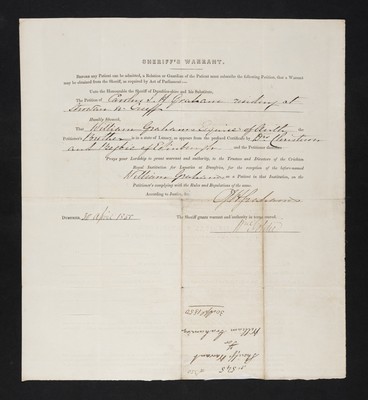 SHERIFF'S WARRANT.
BEFORE any Patient can be admitted, a Relation or Guardian of the Patient must subscribe the following Petition, that a Warrant
may be obtained from the Sheriff, as required by Act of Parliament:—
Unto the Honourable the Sheriff of Dumfriesshire and his Substitute,
The Petition of Graham residing at
Humbly sheweth,
That William Graham the
Petitioner's Brother is in a state of Lunacy, as appears from the prefixed Certificate by Drs
and of Edinburgh and the Petitioner therefore
Prays your Lordship to grant warrant and authority, to the Trustees and Directors of the Crichton
Royal Institution for Lunatics at Dumfries, for the reception of the before-named
William Graham as a Patient in that Institution, on the
Petitioner's complying with the Rules and Regulations of the same.
According to Justice, &c.
Graham
DUMFRIES, 30 April 1855 The Sheriff grants warrant and authority as above craved.
William Graham
for
Sheriff's Warrant